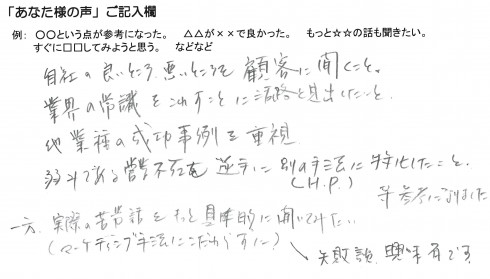 「あなた様の声」ご記入欄
例： 〇〇という点が参考になった。 △△が××で良かった。 もっと☆☆の話も聞きたい。
すぐに□□してみようと思う。 などなど
自社の良いところ、悪いところを顧客に聞くこと。
業界の常識をこわすことに活路を見出したこと、
他業種の成功事例を重視
弱みである営業不在を逆手に別の手法に特化したこと。
(H.P.)
等参考になりました
一方、実際の苦労話をもっと具体的に聞いてみたい
(マーケティング手法にこだわらずに)
失敗談、興味有です